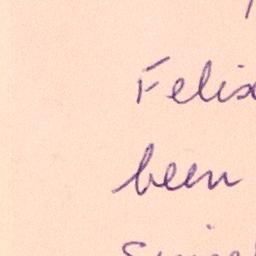 Felix
been